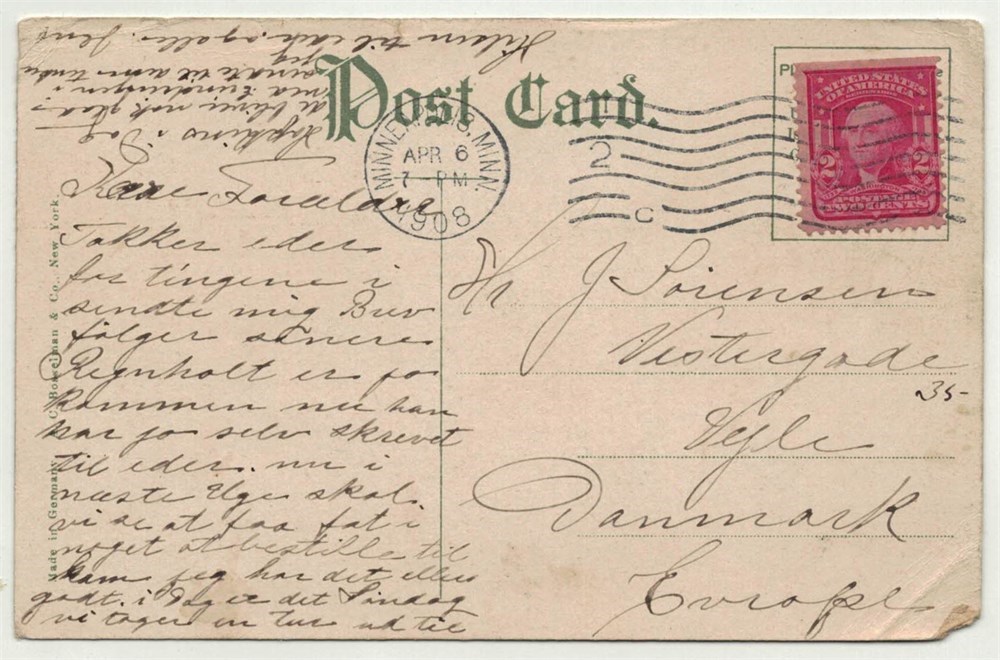 Post Card.
MINNEAPOLIS, MINN.
APR 6
7 PM
1908
2
C
UNITED STATES
OF AMERICA
2 2
POSTAGE
TWO CENTS
Kære Forældre
Takker eder
for tingene i
sendte mig Brev
følger senere
Regnholt er jo
kommen nu han
har jo selv skrevet
til eder. nu i
næste Uge skal
vi se at faa fat i
noget at bestille til
ham jeg har det ellers
godt. i Dag er det Søndag
vi tager en tur ud til
Hopkins i Dag
de bliver nok glade
sendte til
Hilsen til eder alle. Jens
Hr J Sørensen
Vestergade
Vejle
Danmark
Evrope
35-
Made in Germany
Bowelman & Co., New York.